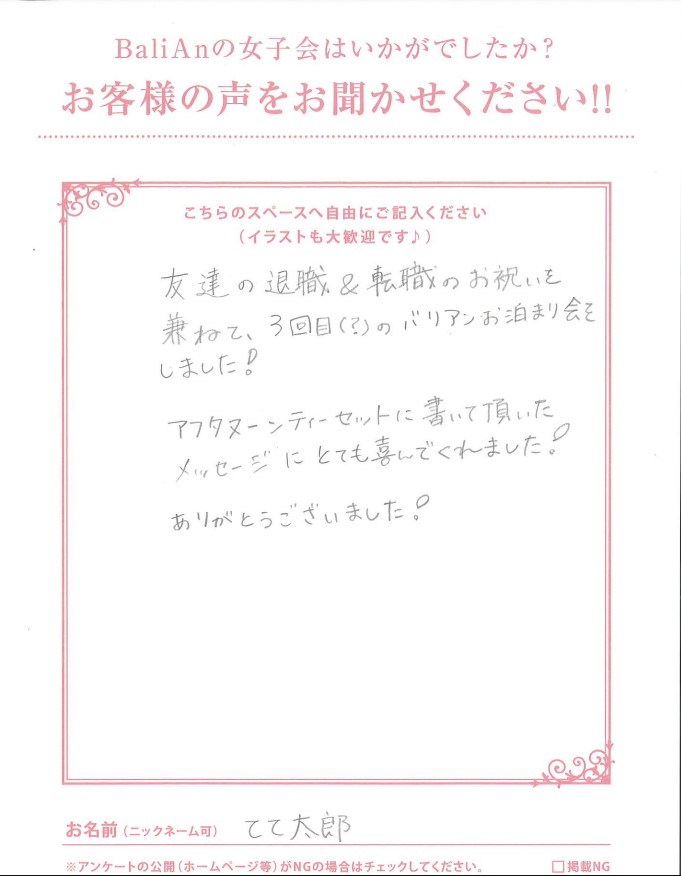 BaliAnの女子会はいかがでしたか?
お客様の声をお聞かせください!!
こちらのスペースへ自由にご記入ください
(イラストも大歓迎です♪)
友達の退職&転職のお祝いを
兼ねて、3回目(?)のバリアンお泊まり会を
しました!
アフタヌーンティーセットに書いて頂いた
メッセージにとても喜んでくれました!
ありがとうございました!
お名前(ニックネーム可) てて太郎
※アンケートの公開(ホームページ等)がNGの場合はチェックしてください。 □掲載NG